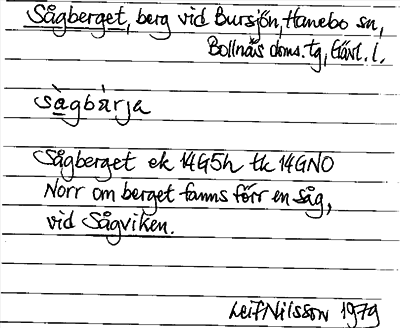 Sågberget, berg vid Bursjön, Hanebo sn,
Bollnäs doms. tg, Gävl. l.
sàgbàrja
Sågberget ek 14G5h tk 14GNO
Norr om berget fanns förr en såg,
vid Sågviken.
Leif Nilsson 1979